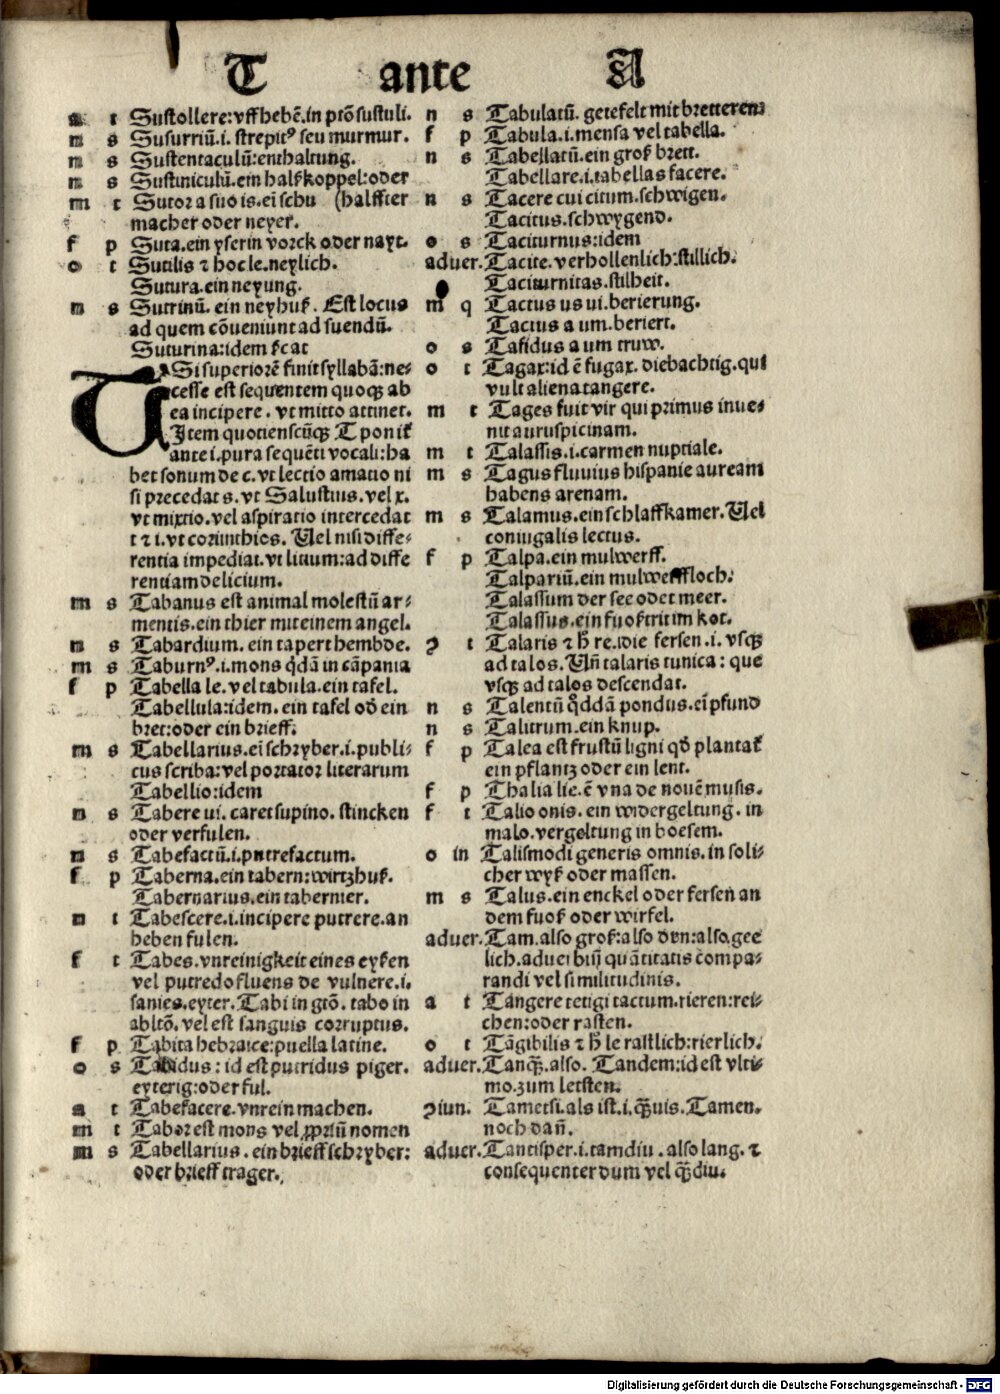 T ante A
a t Sustollere:vffhebē.in ptō sustuli.
n s Susurriū.i. strepitꝰ seu murmur.
n s Sustentaculū:enthaltung.
n s Sustiniculū.ein halßkoppel:oder
m t Sutor a suo is.ei schu (halffter
macher oder neyer.
f p Suta.ein yserin vorck oder nayt.
o t Sutilis ⁊ hoc le.neylich.
Sutura.ein neyung.
n s Sutrinū. ein neyhuß. Est locus
ad quem cōueniunt ad suendū.
Suturina:idem
T Si superiorē finit syllabā:ne⸗
cesse est sequentem quoqꝫ ab
ea incipere. vt mitto attinet.
Item quotienscūqꝫ T ponit͛
ante i.pura sequēti vocali:ha
bet sonum de c.vt lectio amatio ni
si precedat s.vt Salustius.vel x.
vt mixtio.vel aspiratio intercedat
t ⁊ i.vt corinthios. Uel nisi diffe⸗
rentia impediat.vt litium:ad diffe
rentiam delicium.
m s Tabanus est animal molestū ar⸗
mentis.ein thier mit einem angel.
n s Tabardium. ein tapert hembde.
m s Taburnꝰ.i.mons qdā in cāpania
f p Tabella le.vel tabula.ein tafel.
Tabellula:idem. ein tafel od ein
bret:oder ein brieff.
m s Tabellarius.ei schryber.i.publi⸗
cus scriba:vel portator literarum
Tabellio:idem
n s Tabere ui. caret supino. stincken
oder verfulen.
n s Tabefactū.i.putrefactum.
f p Taberna.ein tabern:wirtzhuß.
Tabernarius.ein tabernier.
n t Tabescere.i.incipere putrere.an
heben fulen.
f t Tabes.vnreinigkeit eines eyßen
vel putredo fluens de vulnere.i.
sanies.eyter. Tabi in gtō. tabo in
abltō.vel est sanguis corruptus.
f p Tabita hebraice:puella latine.
o s Tabidus: id est putridus piger.
eyterig:oder ful.
a t Tabefacere.vnrein machen.
m t Tabor est mons vel ꝓpriū nomen
m s Tabellarius. ein brieff schryber:
oder brieff trager.
n s Tabulatū. getefelt mit bretteren
f p Tabula.i.mensa vel tabella.
n s Tabellatū.ein groß brett.
Tabellare.i.tabellas facere.
n s Tacere cui citum.schwigen.
Tacitus.schwygend.
o s Taciturnus:idem
aduer. Tacite.verhollenlich:stillich.
Taciturnitas.stilheit.
m q Tactus us ui.berierung.
Tactus a um.beriert.
o s Tafidus a um truw.
o t Tagax:id ē fugax. diebachtig.qui
vult aliena tangere.
m t Tages fuit vir qui primus inue⸗
nit auruspicinam.
m t Talassis.i.carmen nuptiale.
m s Tagus fluuius hispanie auream
habens arenam.
m s Talamus.ein schlaffkamer. Uel
coniugalis lectus.
f p Talpa.ein mulwerff.
Talpariū.ein mulwerffloch.
Talassum der see odet meer.
Talassus.ein fuoßtrit im kot.
ꝯ t Talaris ⁊ h̄ re.idie fersen.i. vsqꝫ
ad talos. Uñ talaris tunica: que
vsqꝫ ad talos descendat.
n s Talentū qddā pondus.ei pfund
n s Talitrum.ein knup.
f p Talea est frustū ligni qd plantat͛
ein pflantz oder ein lent.
f p Thalia lie.ē vna de nouē musis.
f t Talio onis. ein widergeltung. in
malo.vergeltung in boesem.
o in Talismodi generis omnis. in soli⸗
cher wyß oder massen.
m s Talus.ein enckel oder fersen an
dem fuoß oder wirfel.
aduer. Tam.also groß:also dyn:also gee
lich.aduerbiū quātitatis compa⸗
randi vel similitudinis.
a t Tangere tetigi tactum.rieren:rei⸗
chen:oder rasten.
o t Tāgibilis ⁊ h̄ le rastlich:rierlich.
aduer. Tanqꝫ.also. Tandem:id est vlti⸗
mo.zum letsten.
ꝯiun. Tametsi.als ist.i.qꝫuis. Tamen.
noch dañ.
aduer. Tantisper.i.tamdiu . also lang. ⁊
consequenter dum vel qꝫdiu.
Digitalisierung gefördert durch die Deutsche Forschungsgemeinschaft - DFG